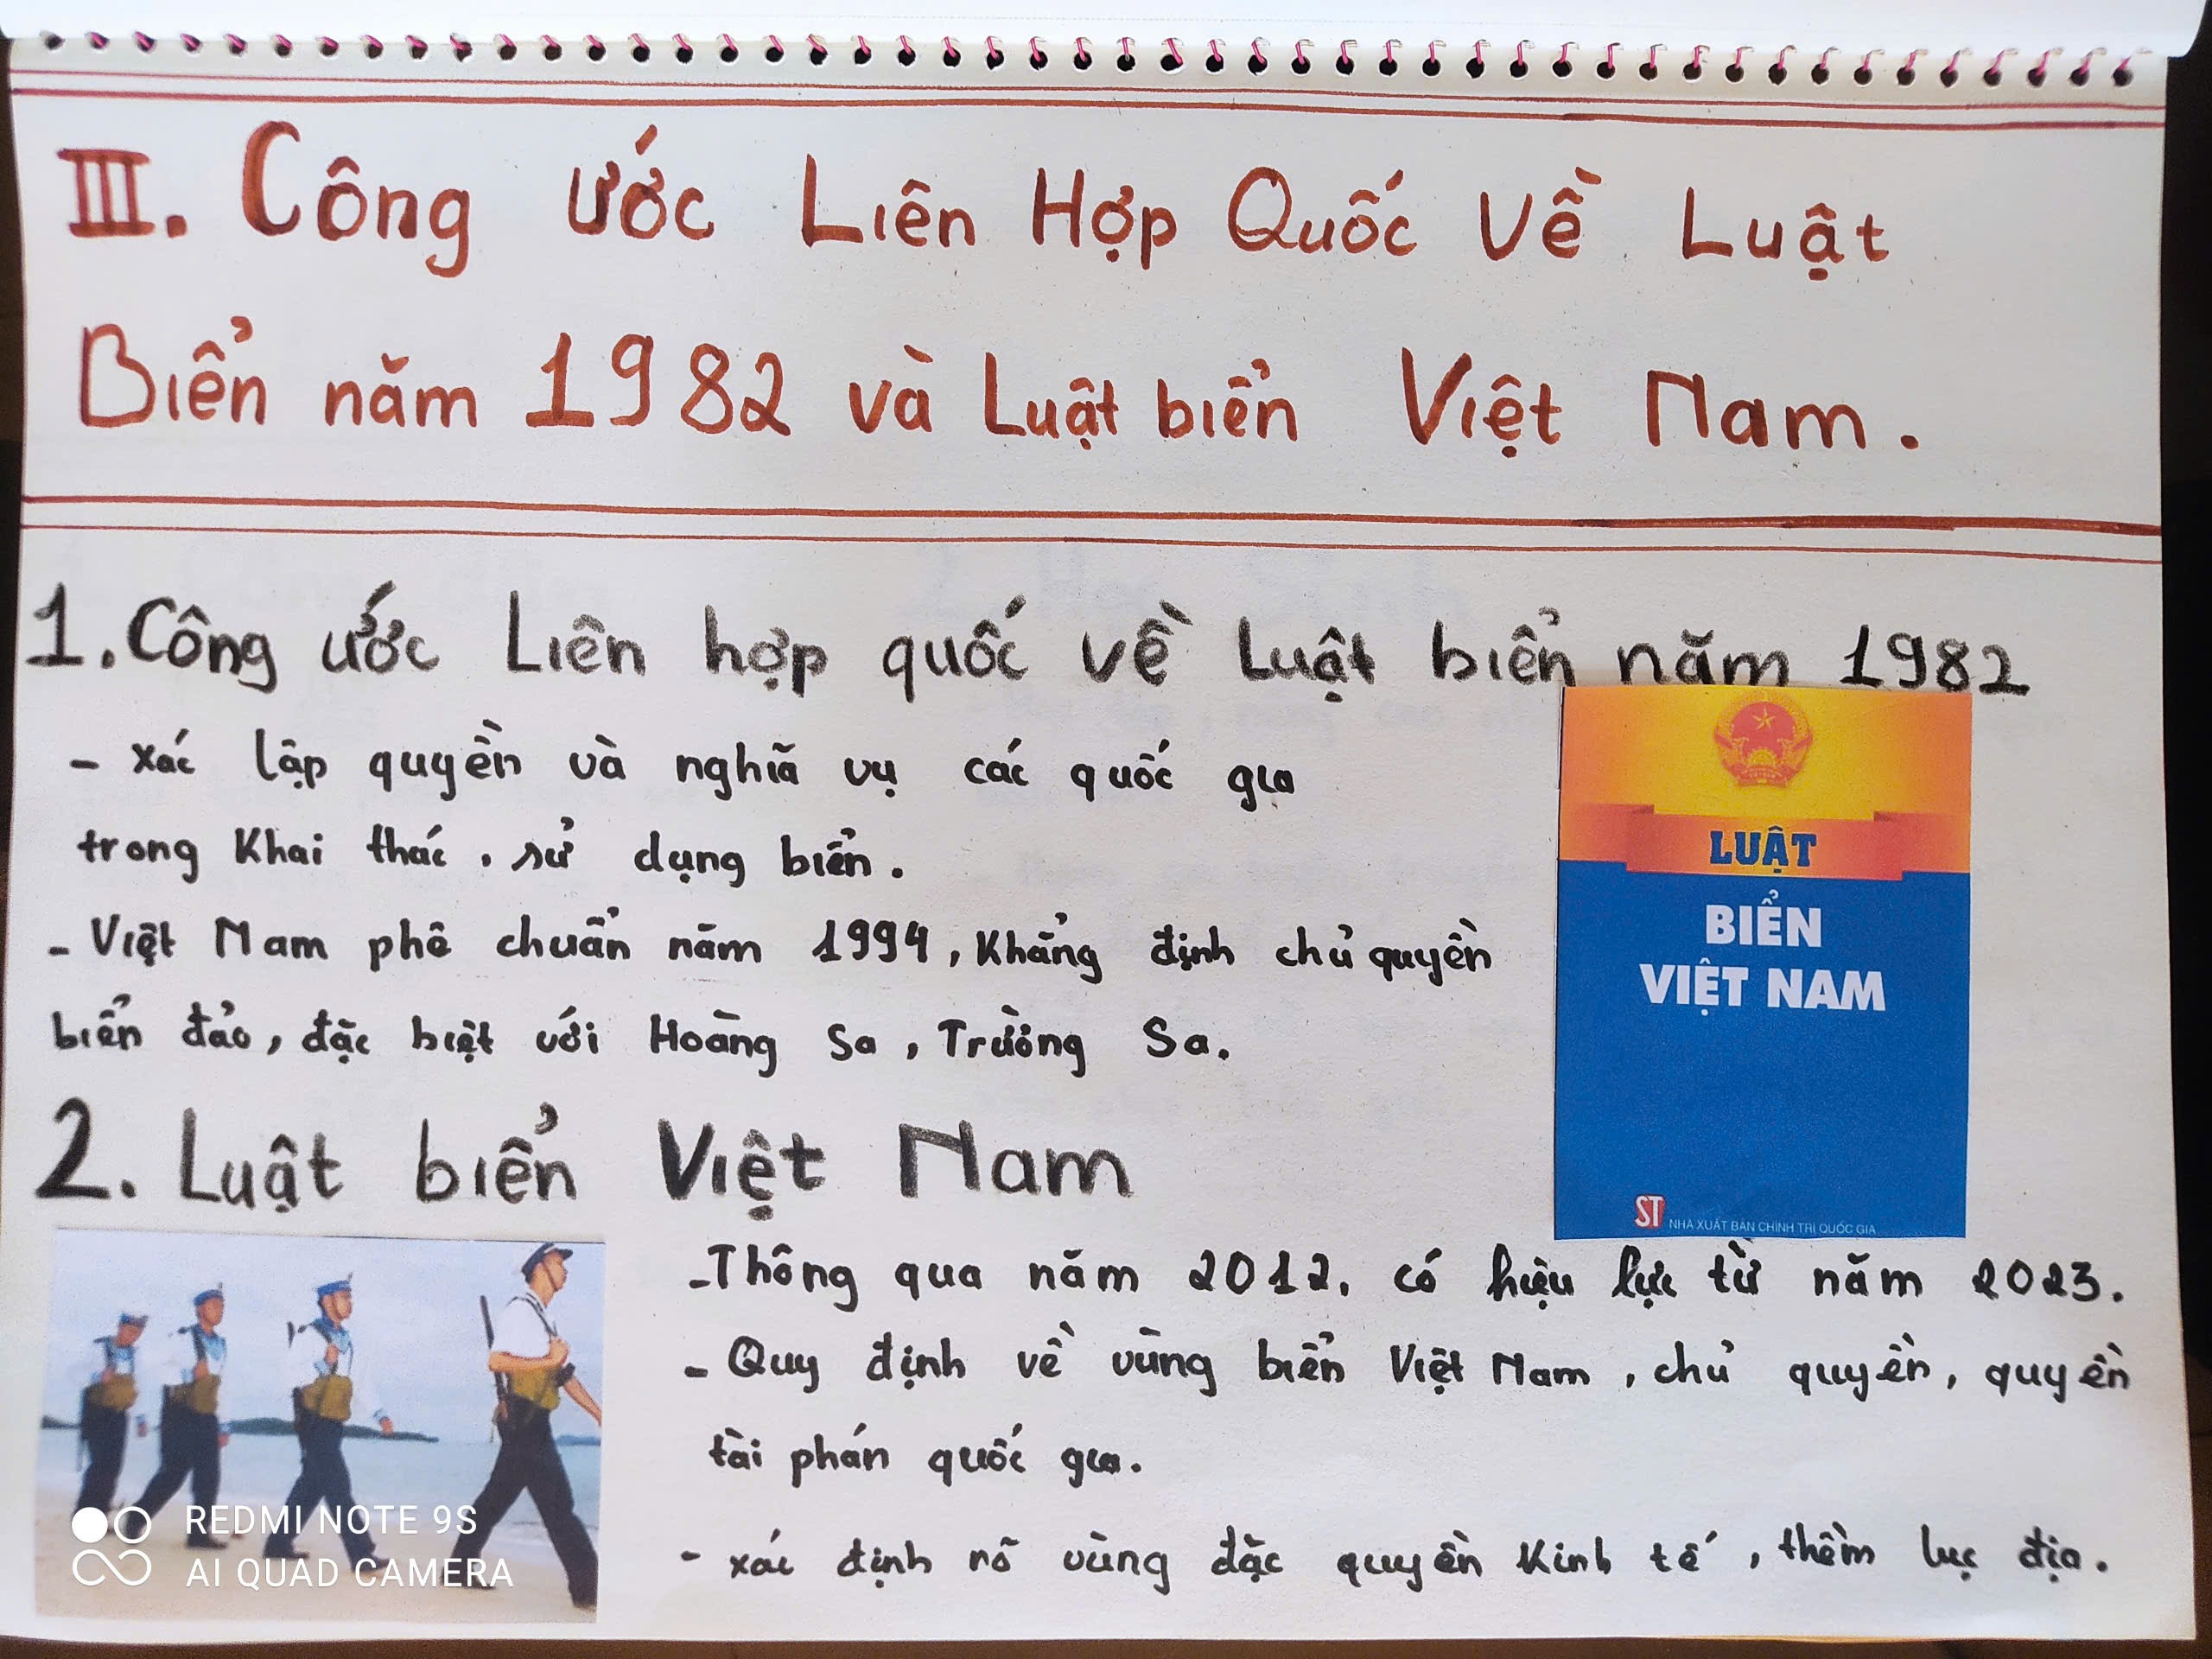 III. Công ước Liên Hợp Quốc Về Luật
Biển năm 1982 và Luật biển Việt Nam.
1. Công ước Liên hợp quốc về Luật biển năm 1982
- xác lập quyền và nghĩa vụ các quốc gia
trong Khai thác, sử dụng biển.
- Việt Nam phê chuẩn năm 1994, Khẳng định chủ quyền
biển đảo, đặc biệt với Hoàng Sa, Trường Sa.
LUẬT
BIỂN
VIỆT NAM
ST NHÀ XUẤT BẢN CHÍNH TRỊ QUỐC GIA
2. Luật biển Việt Nam
- Thông qua năm 2012. có hiệu lực từ năm 2023.
- Quy định về vùng biển Việt Nam, chủ quyền, quyền
tài phán quốc gia.
- xác định rõ vùng đặc quyền Kinh tế, thềm lục địa.
REDMI NOTE 9S
AI QUAD CAMERA